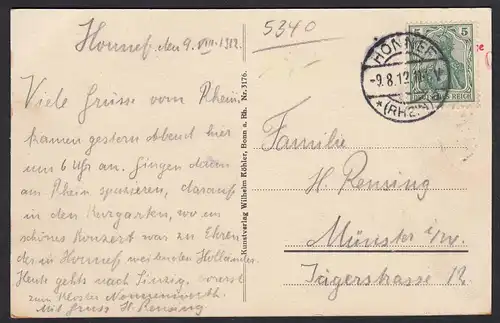 Honnef den 9. VIII. 1912.
Viele Grüsse vom Rhein
kamen gestern Abend hier
um 6 Uhr an. Gingen dann
am Rhein spazieren, darauf
in den Kurgarten, wo ein
schönes Konzert war zu Ehren
der in Honnef weilenden Holländer.
Heute gehts nach Sinzig, vorerst
zum Kloster Nonnenwerth.
Mit Gruss H. Rensing
Kunstverlag Wilhelm Köhler, Bonn a. Rh. Nr. 3176.
5340
HONNEF
-9.8.12. V
* (RHEIN) a
5 5
REICH
Familie
H. Rensing
Münster i/W.
Jägerstrasse 12